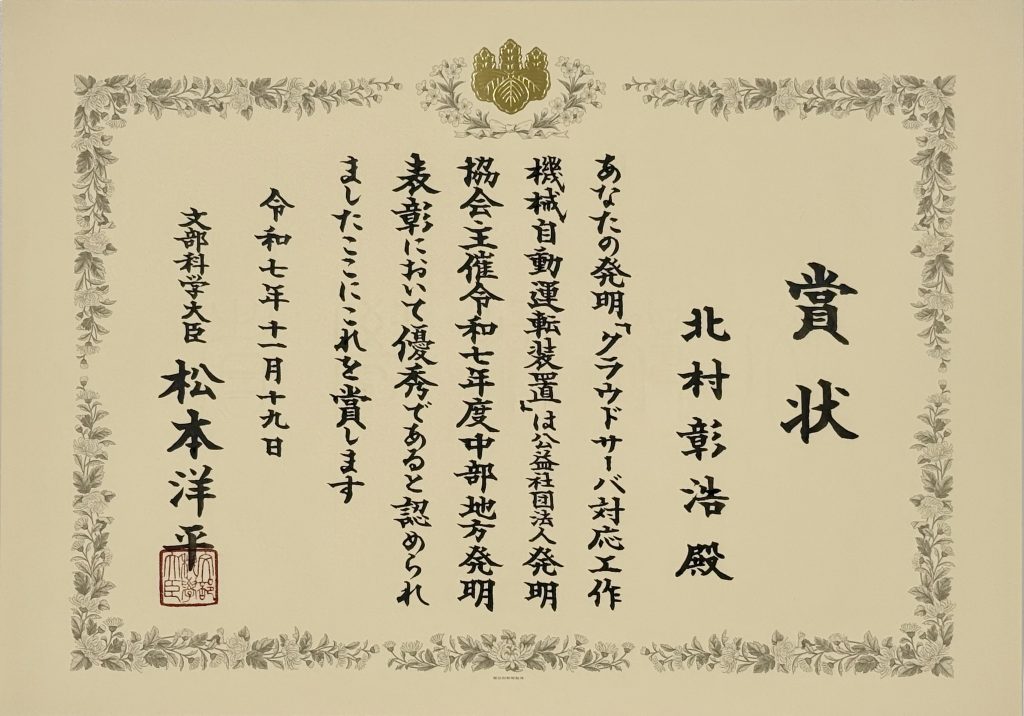 賞状
北村彰浩殿
あなたの発明「クラウドサーバ対応工作
機械自動運転装置」は公益社団法人発明
協会主催令和七年度中部地方発明
表彰において優秀であると認められ
ましたここにこれを賞します
令和七年十一月十九日
文部科学大臣 松本洋平